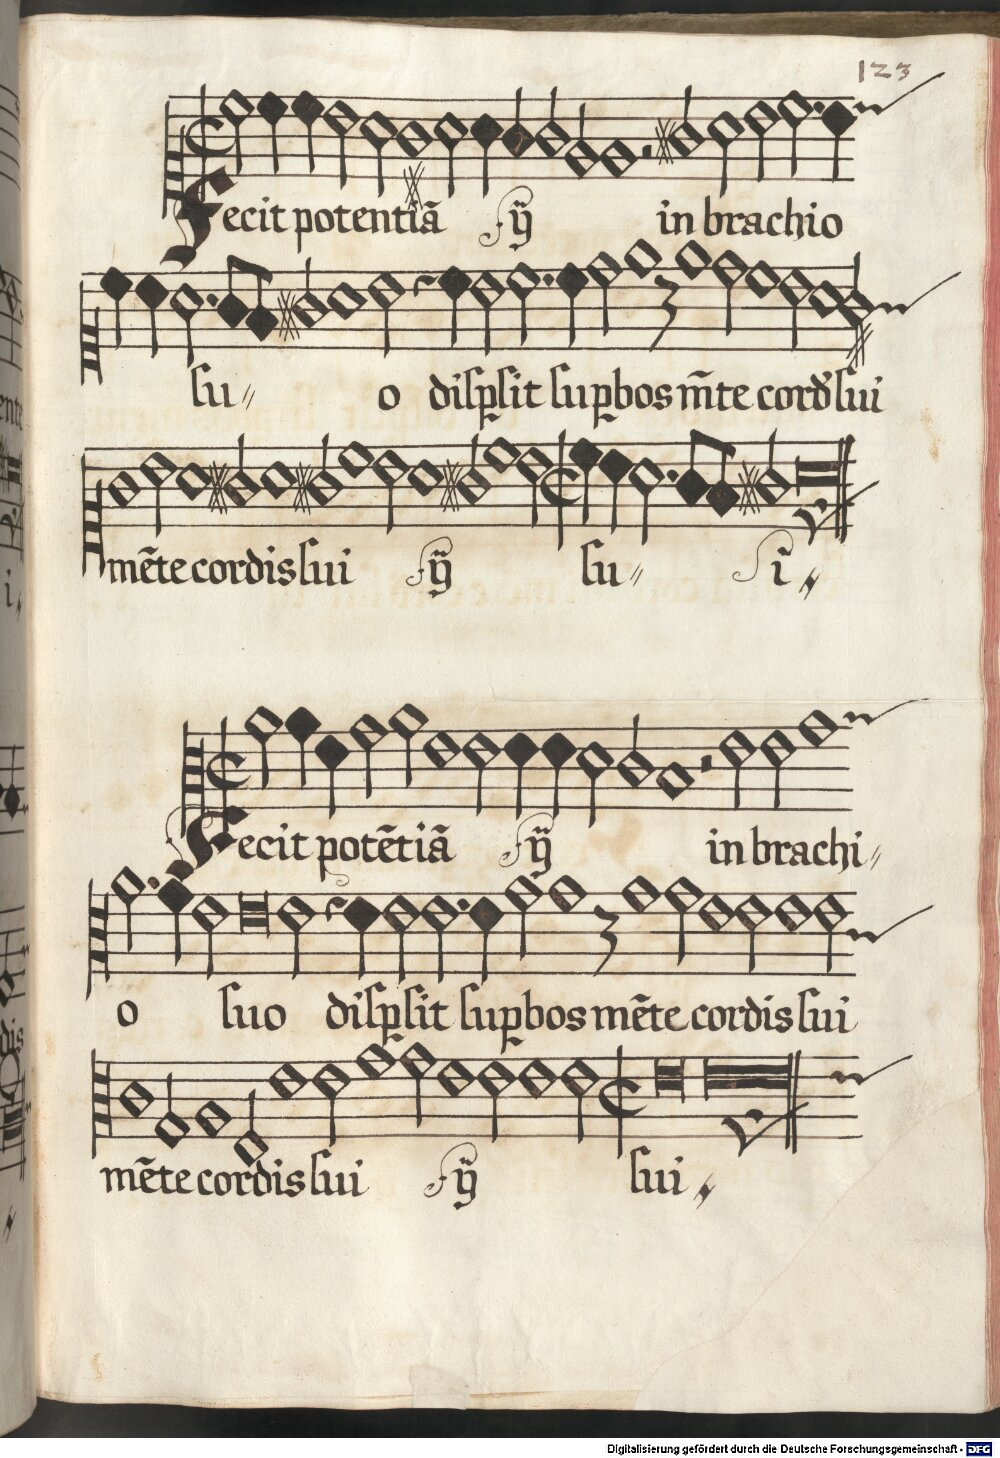 123
Fecit potentiā ij̈ in brachio
su〃 o disꝑsit suꝑbos m̄te cord' sui
mēte cordis sui ij̈ su〃 ī
Fecit potētiā ij̈ in brachi〃
o suo disꝑsit suꝑbos mēte cordis sui
mēte cordis sui ij̈ sui
Digitalisierung gefördert durch die Deutsche Forschungsgemeinschaft - DFG